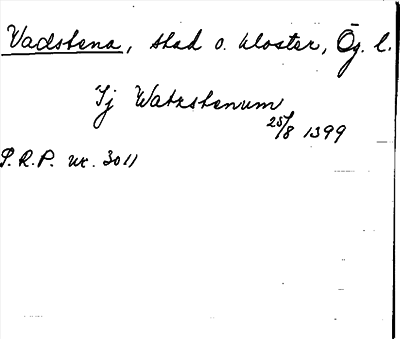 Vadstena, stad o. kloster, Ög. l.
Ij Watzstenum
25/8 1399
S.R.P. nr. 3011